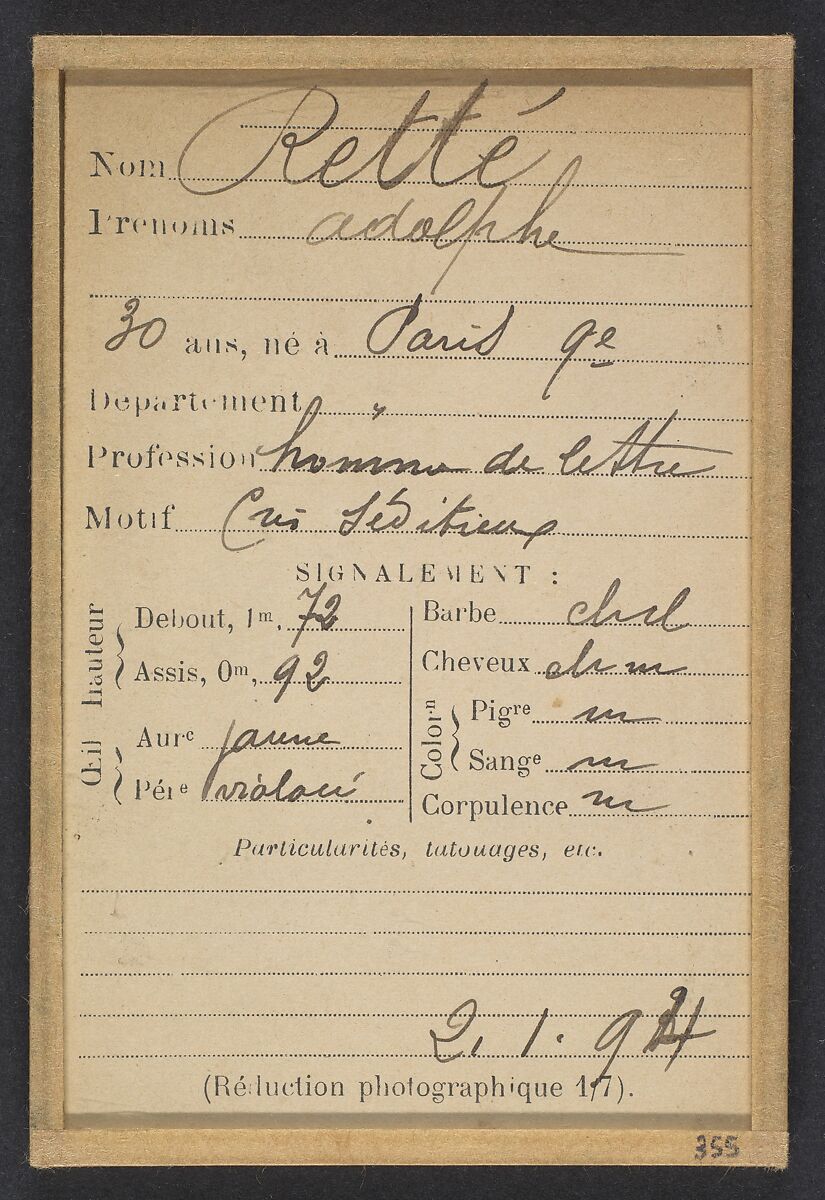 Nom Retté
Prénoms adolphe
30 ans, né à Paris 9e
Département "
Profession homme de lettre
Motif Cris séditieux
SIGNALEMENT :
hauteur
Debout, 1m, 72
Assis, 0m, 92
Œil
Aure jaune
Pére
Barbe
Cheveux ch m
Colorn
Pigre m
Sange m
Corpulence m
Particularités, tatouages, etc.
2. 1. 94
(Réduction photographique 1/7).
355